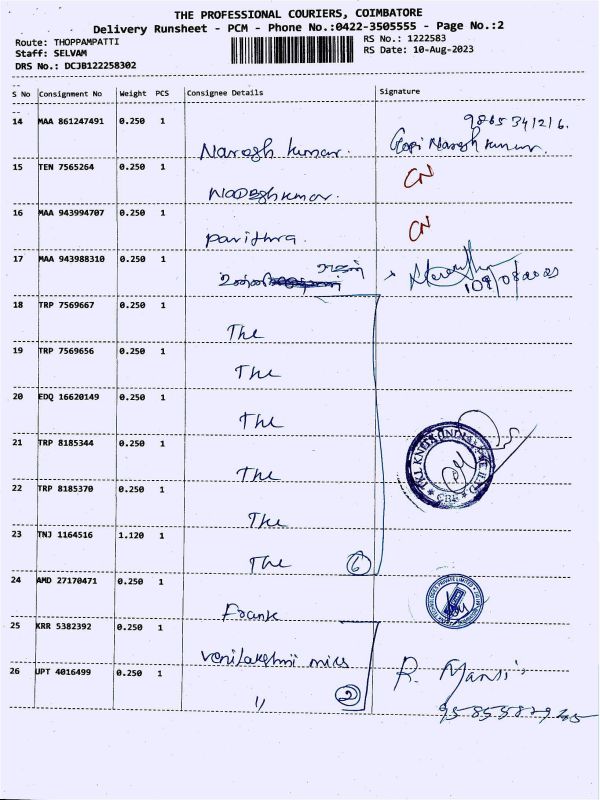 THE PROFESSIONAL COURIERS, COIMBATORE
Delivery Runsheet - PCM - Phone No.:0422-3505555 - Page No.:2
Route: THOPPAMPATTI
Staff: SELVAM
DRS No.: DCJB122258302
RS No.: 1222583
RS Date: 10-Aug-2023
S No Consignment No Weight PCS Consignee Details Signature
14 MAA 861247491 0.250 1 Naresh kumar. Gopi Naresh kumar.
15 TEN 7565264 0.250 1 Nareshkumar. CN
16 MAA 943994707 0.250 1 Pavithra. CN
17 MAA 943988310 0.250 1
18 TRP 7569667 0.250 1 The
19 TRP 7569656 0.250 1 The
20 EDQ 16620149 0.250 1 The
21 TRP 8185344 0.250 1 The
22 TRP 8185370 0.250 1 The
23 TNJ 1164516 1.120 1 The 6
24 AMD 27170471 0.250 1 Frank
25 KRR 5382392 0.250 1 Venilakshmi mics
26 UPT 4016499 0.250 1 " 2 R. Mani